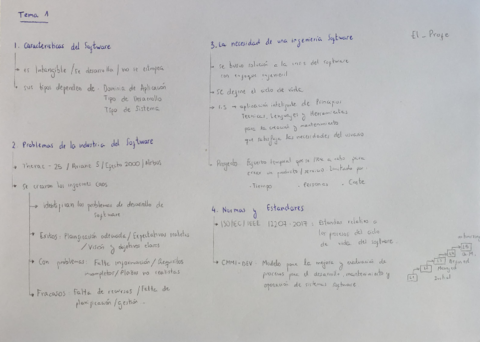 Tema 1
1. Características del Software
es Intangible / se desarrolla / no se estropea
sus tipo dependen de: Dominio de Aplicación
Tipo de Desarrollo
Tipo de Sistema
2. Problemas de la industria del Software
Therac - 25 / Ariane 5 / Efecto 2000 /
Se crearon los informes CHAOS
identifican los problemas de desarrollo de
Software
Exitos: Planificación adecuada / Expectativas realistas /
Visión y objetivos claros
Con problemas: Falta / Requisitos
incompletos / Plazos no realistas
Fracasos: Falta de recursos / falta de
planificación / gestión.
3. La necesidad de una ingeniería Software
Se busca solución a la crisis del Software
con enfoque ingenieril
Se define el ciclo de vida
I.S → aplicación inteligente de Principios
Técnicas, Lenguajes y Herramientas
para la creación y mantenimiento
que satisfaga las necesidades del usuario
Proyecto: Esfuerzo temporal que se lleva a cabo para
crear un producto / servicio. Limitado por
- Tiempo - Personas - Coste
4. Normas y Estandares
ISO/IEC/IEEE 12207-2017: Estandar relativo a
los procesos del ciclo
de vida del software
CMMI-DEV: Modelo para la mejora y evaluación de
procesos para el desarrollo, mantenimiento y
operación de sistemas software
El - Proye
Inicial